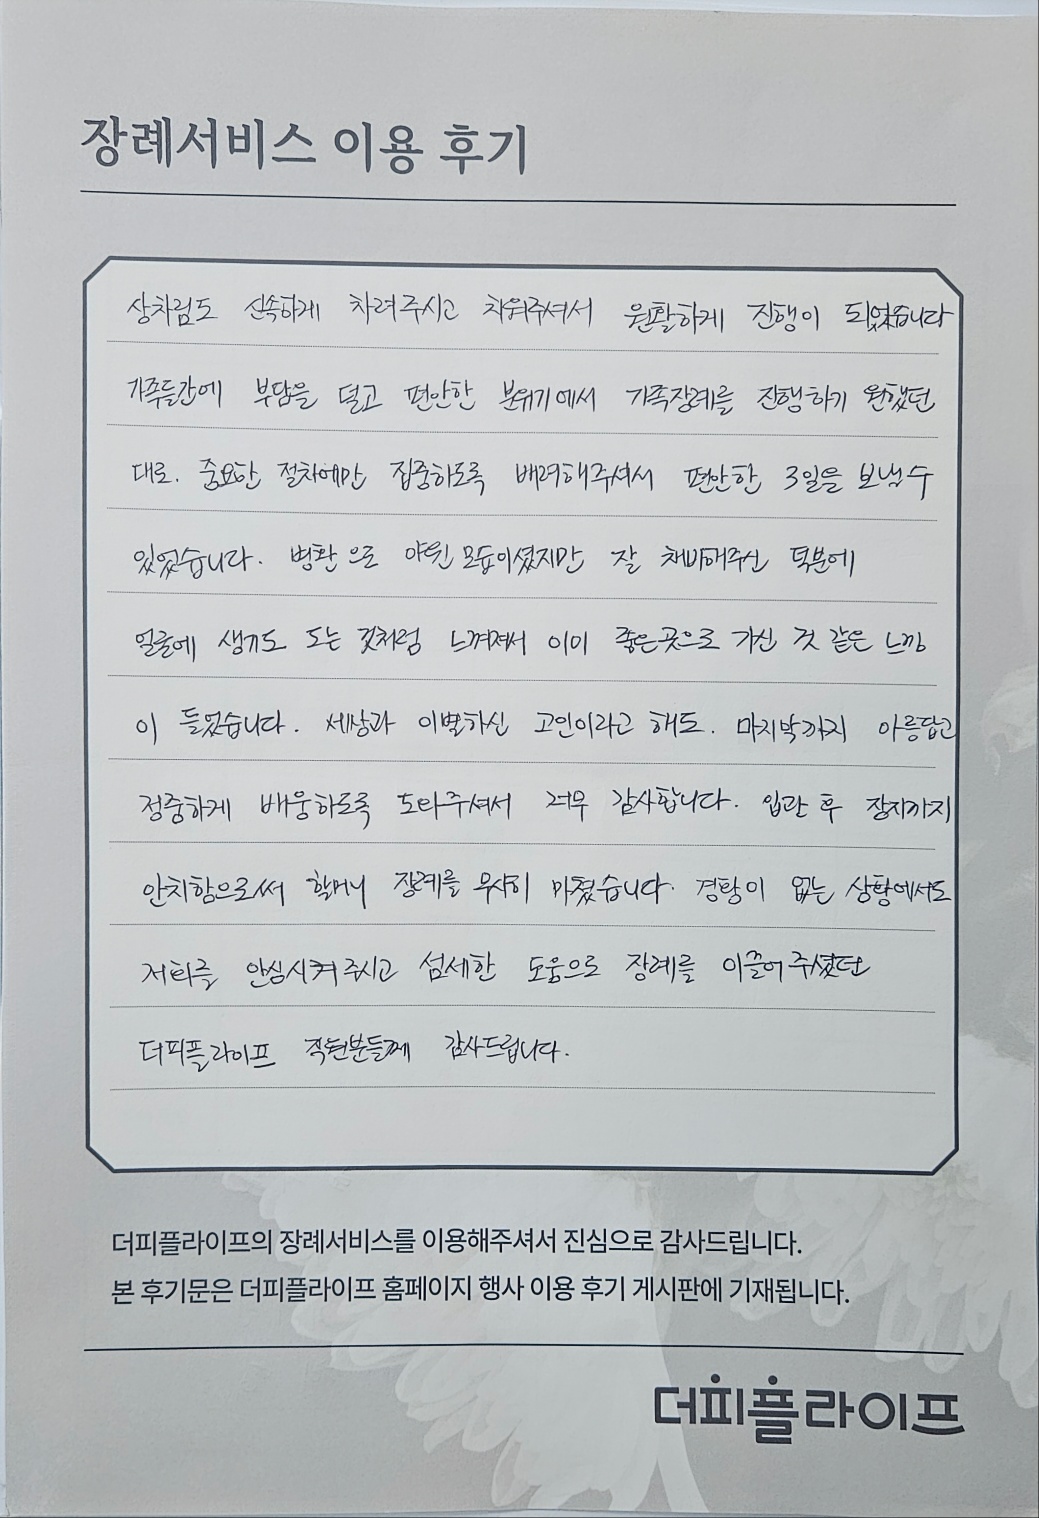 장례서비스 이용 후기
상차림도 신속하게 차려주시고 치워주셔서 원활하게 진행이 되었습니다
가족들간에 부담을 덜고 편안한 분위기에서 가족장례를 진행하기 원했던
대로. 중요한 절차에만 집중하도록 배려해주셔서 편안한 3일을 보낼 수
있었습니다. 병환으로 야윈 모습이셨지만 잘 채비해주신 덕분에
얼굴에 생기도 도는 것처럼 느껴져서 이미 좋은곳으로 가신 것 같은 느낌
이 들었습니다. 세상과 이별하신 고인이라고 해도. 마지막까지 아름답고
정중하게 배웅하도록 도와주셔서 너무 감사합니다. 입관 후 장지까지
안치함으로써 할머니 장례를 무사히 마쳤습니다. 경황이 없는 상황에서도
저희를 안심시켜주시고 섬세한 도움으로 장례를 이끌어주셨던
더피플라이프 직원분들께 감사드립니다.
더피플라이프의 장례서비스를 이용해주셔서 진심으로 감사드립니다.
본 후기문은 더피플라이프 홈페이지 행사 이용 후기 게시판에 기재됩니다.
더피플라이프